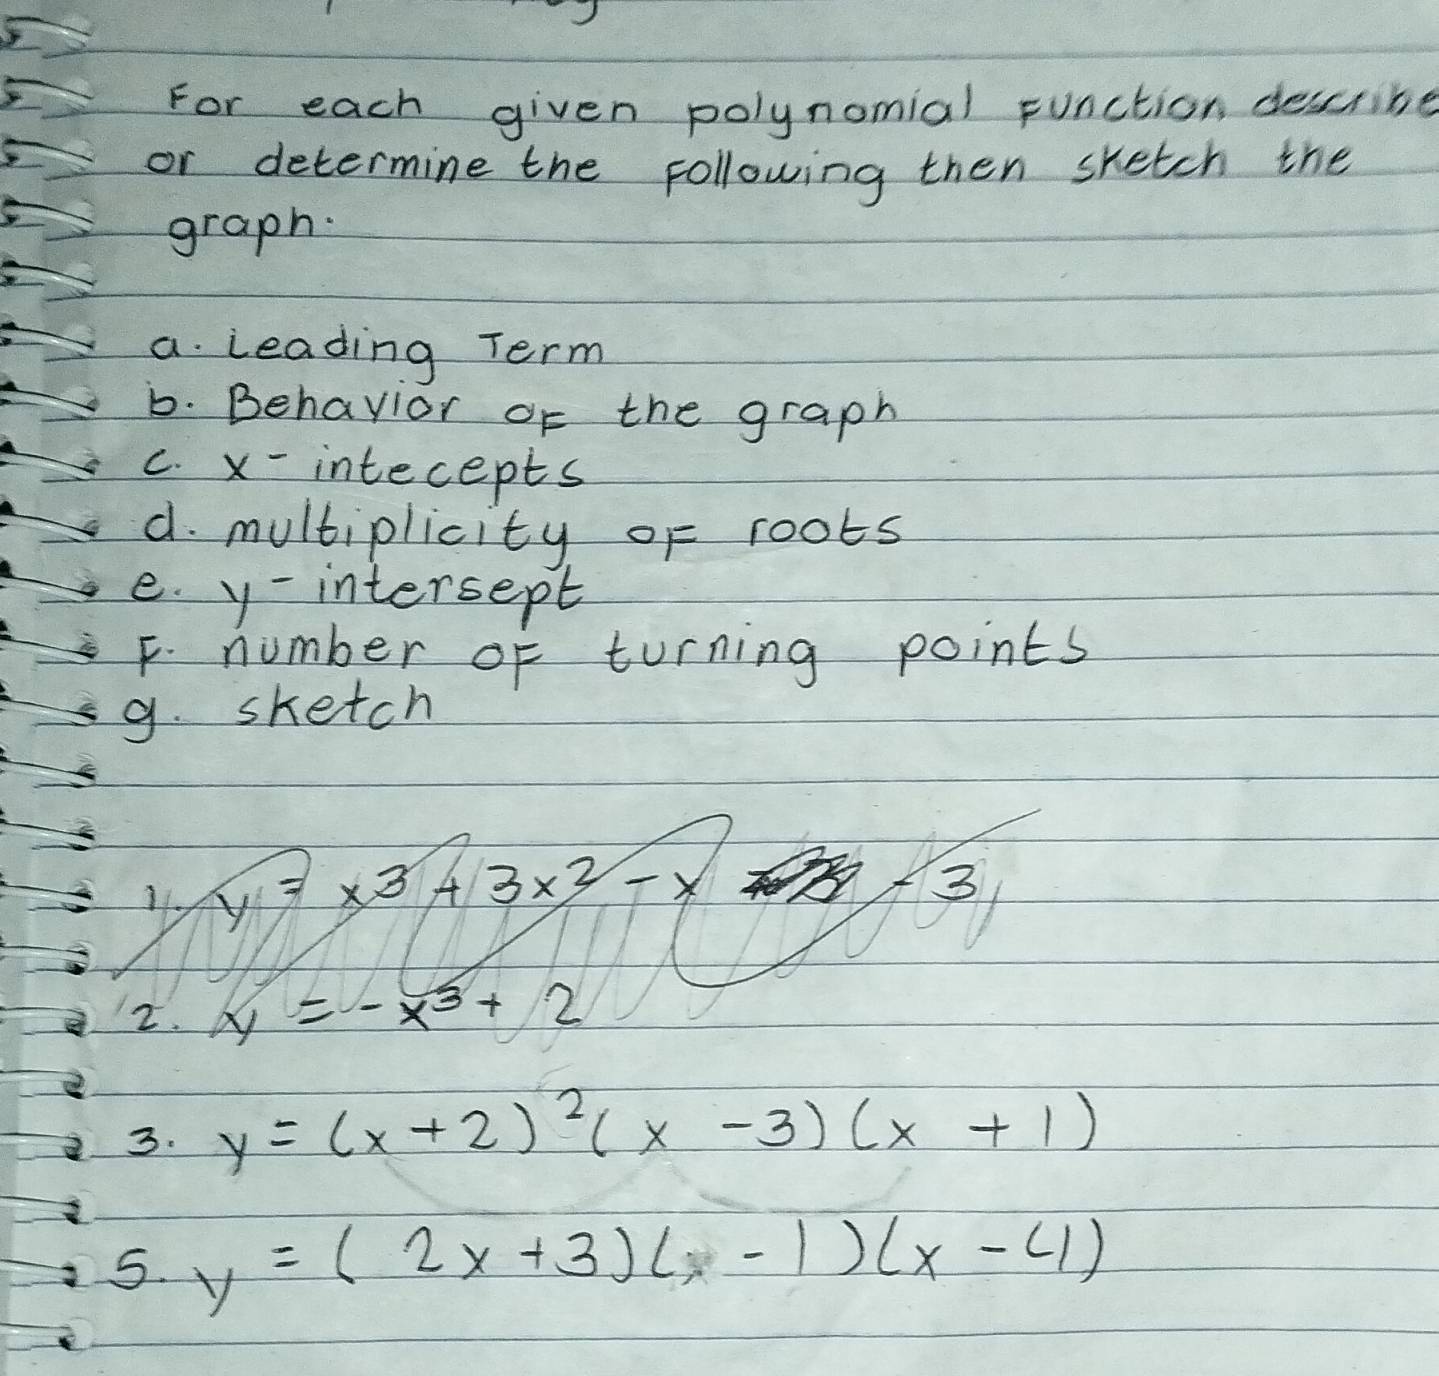 For each given polynomial function describe
or determine the following then sketch the
graph.
a. Leading Term
b. Behavior of the graph
c. x-intecepts
d. multiplicity of roots
e. y-intersept
F. number of turning points
g. sketch
1. y = x³ + 3x² - x - 3
2. y = -x³ + 2
3. y = (x + 2)² (x - 3)(x + 1)
5. y = (2x + 3)(x - 1)(x - 4)